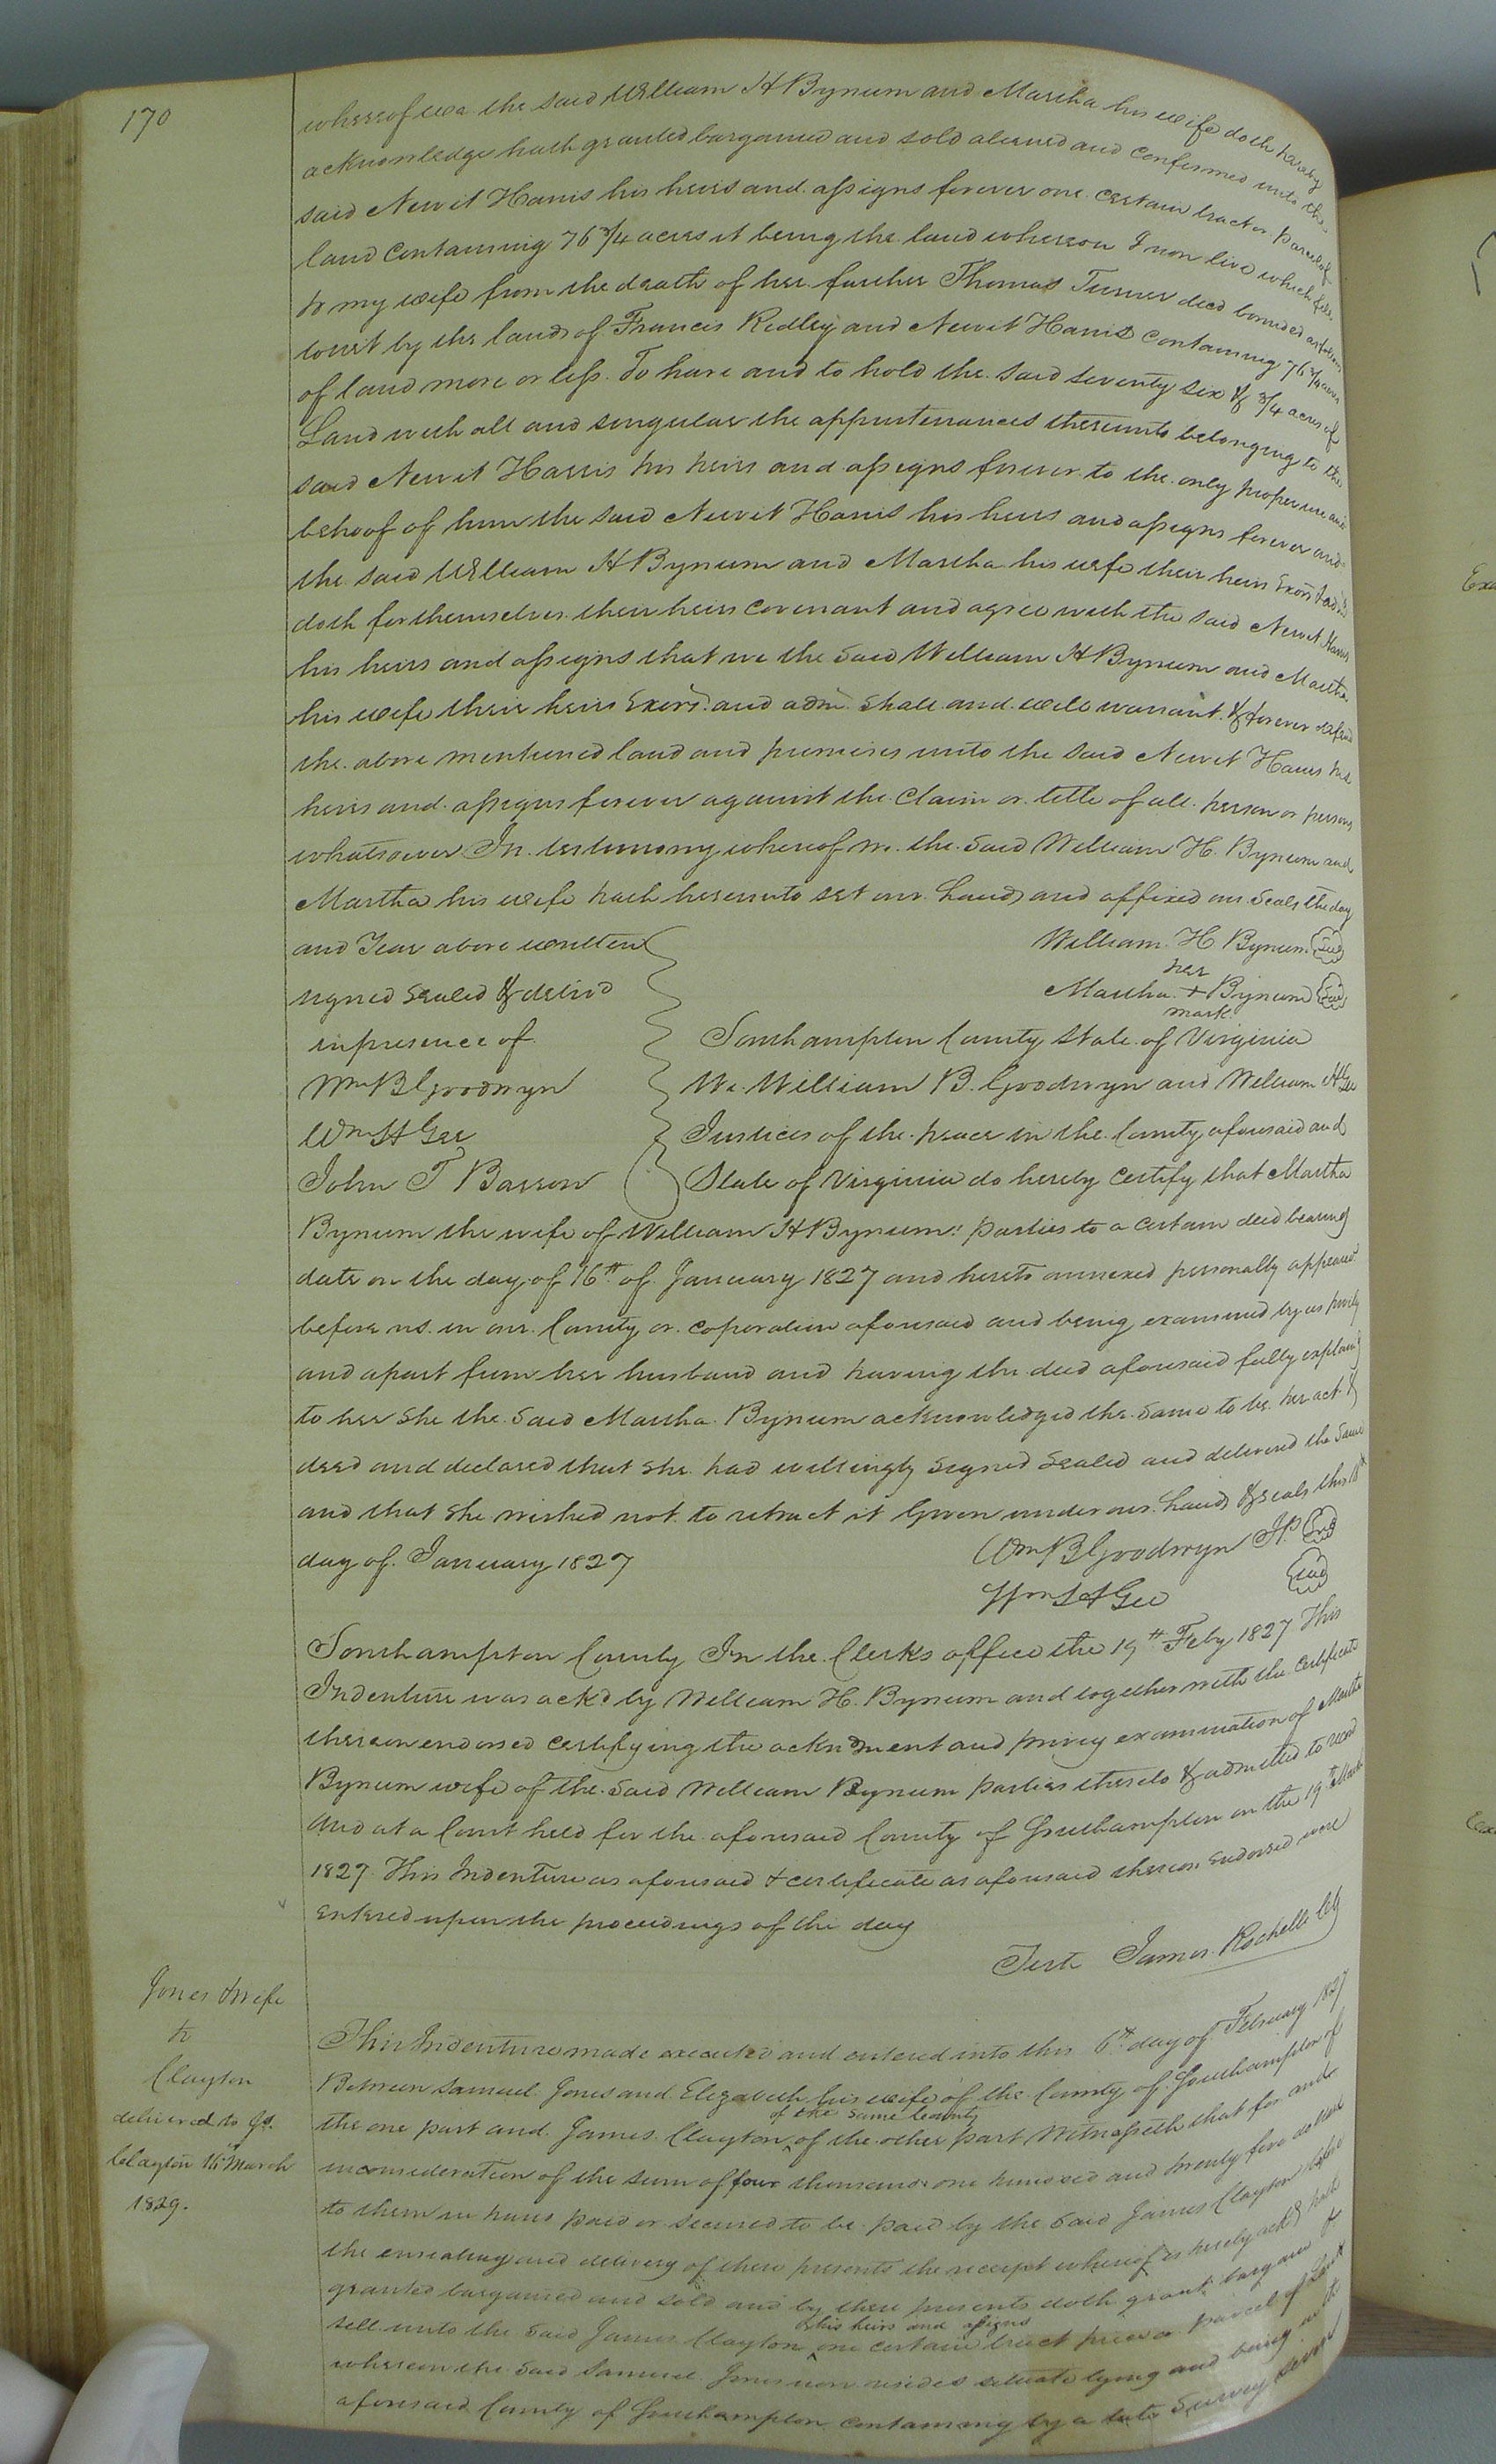 170
whereof we the said William H Bynum and Martha his wife doth hereby
acknowledge hath granted bargained and sold aliened and confirmed unto the
said Newit Harris his heirs and assigns forever one certain tract or parcel of
land containing 76 3/4 acres it being the land whereon I now live which fell
to my wife from the death of her farther Thomas Turner decd bounded as follows
towit by the lands of Francis Ridley and Newit Harris containing 76 3/4 acres
of land more or less. To have and to hold the said seventy six & 3/4 acres of
Land with all and singular the appurtenances thereunto belonging to the
said Newit Harris his heirs and assigns forever to the only proper use and
behoof of him the said Newit Harris his heirs and assigns forever and
the said William H Bynum and Martha his wife their heirs Exors & adms
doth for themselves their heirs covenant and agree with the said Newit Harris
his heirs and assigns that we the said William H Bynum and Martha
his wife their heirs Exors. and adm. shall and will warrant & forever defend
the above mentioned land and premises unto the said Newit Harris his
heirs and assigns forever against the claim or title of all person or persons
whatsoever In testimony whereof we the said William H. Bynum and
Martha his wife hath hereunto set our hands and affixed our seals the day
and Year above written
William H Bynum Seal
signed sealed & delivd
her
Martha + Bynum Seal
mark
in presence of
Southampton County State of Virginia
Wm B Goodwyn
We William B. Goodwyn and William A Gee
Wm A Gee
Justices of the peace in the County aforesaid and
John T Barrow
State of Virginia do hereby certify that Martha
Bynum the wife of William H Bynum: parties to a certain deed bearing
date on the day of 16th of January 1827 and hereto annexed personally appeared
before us in our County or coporation aforesaid and being examined by us privily
and apart from her husband and having the deed aforesaid fully explaind
to her she the said Martha Bynum acknowledged the same to be her act &
deed and declared that she had willingly signed sealed and delivered the same
and that she wished not to retract it Given under our hands & seals this
day of January 1827
Wm B Goodwyn JP. Seal
Wm A Gee Seal
Southampton County In the Clerks office the 19th Feby 1827 This
Indenture was ackd by William H. Bynum and together with the certificate
thereon endorsed certifying the ackndment and privy examination of Martha
Bynum wife of the said William Bynum parties thereto & admitted to record
And at a Court held for the aforesaid County of Southampton on the 19th March
1827. This Indenture as aforesaid & certificate as aforesaid thereon endorsed were
entered upon the proceedings of the day
Teste James Rochelle Clk
Jones & wife
to
Clayton
delivered to Js.
Clayton 16 March
1829.
This Indenture made executed and entered into this 6th day of February 1827
Between Samuel Jones and Elizabeth his wife of the County of Southampton of
of the same County
the one part and James Clayton of the other part Witnesseth that for and
in consideration of the sum of four thousand one hundred and twenty five dollars
to them in hand paid or secured to be paid by the said James Clayton before
the ensealing and delivery of these presents the receipt whereof is hereby ackd hath
granted bargained and sold and by these presents doth grant bargain &
his heirs and assigns
sell unto the said James Clayton one certain tract piece or parcel of Land
whereon the said Samuel Jones now resides situate lying and being in the
aforesaid County of Southampton containing by a late Survey several